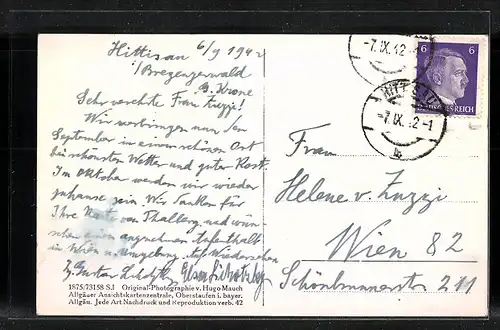 Hittisau 6/9 1942
i/Bregenzerwald
G. Krone
Sehr verehrte Frau Zuzzi!
Wir verbringen nun den
September in einem schönen Ort
bei schönstem Wetter und guter Kost.
Im Oktober werden wir wieder
zuhause sein. Wir danken für
Ihre Karte von Thalberg und wün-
schen einen angenehmen Aufenthalt
in Wien u. Umgebung. Auf Wiedersehen
Gustav
1875/73158 SJ Original-Photographie v. Hugo Mauch
Allgäuer Ansichtskartenzentrale, Oberstaufen i. bayer.
Allgäu. Jede Art Nachdruck und Reproduktion verb. 42
-7.IX.42
6 6
DEUTSCHES REICH
HITTISAU
-7.IX.42-1
b
Frau
Helene v. Zuzzi
Wien 82
Schönbrunnerstr 211